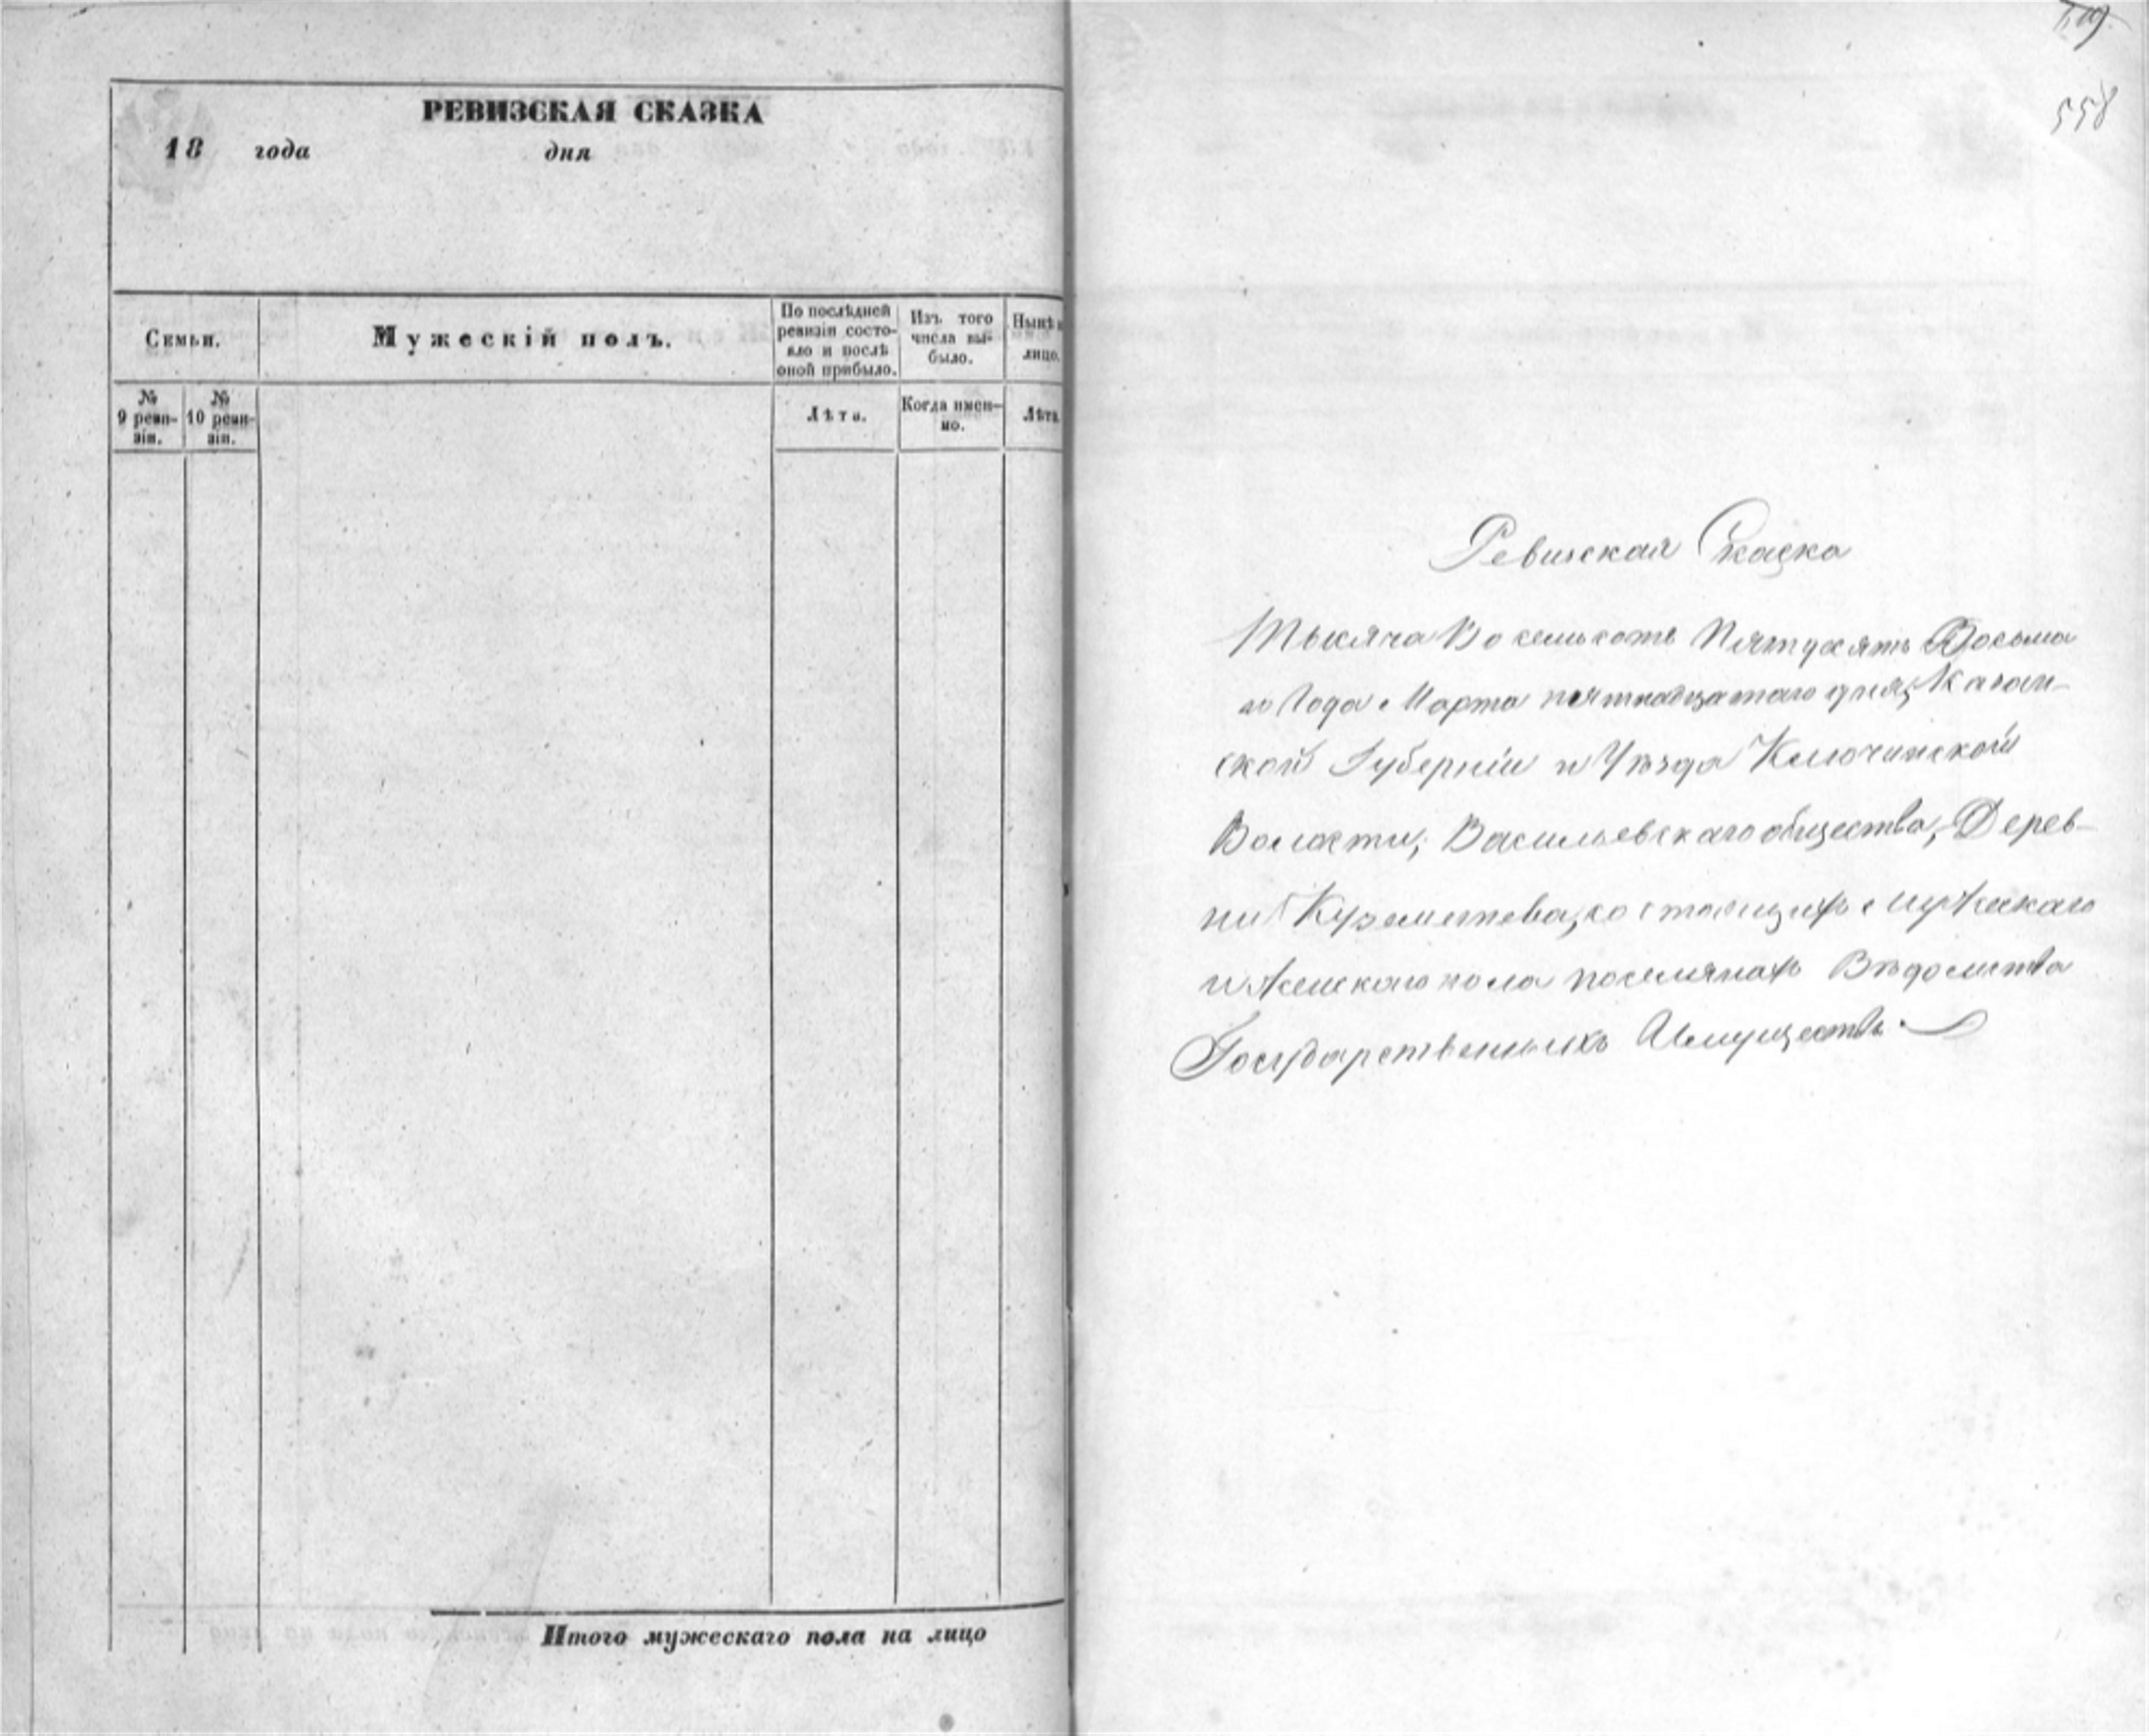 РЕВИЗСКАЯ СКАЗКА
18 года дня
Семьи.
Мужескій полъ.
По послѣдней
ревизіи состо-
яло и послѣ
оной прибыло.
Изъ того
числа вы-
было.
Нынѣ
лицо.
№
9 реви-
зіи.
№
10 реви-
зіи.
Лѣта.
Когда имен-
но.
Лѣта
Итого мужескаго пола на лицо
558
Ревизская Сказка
Тысяча Восемьсотъ Пятьдесятъ Восьма
го Года Марта пятнадцатаго дня, Казан-
ской Губерніи и Уѣзда Ключинской
Волости, Васильевскаго общества, Дерев-
ни состоящихъ мужескаго
и женскаго пола поселянахъ Вѣдомства
Государственныхъ Имуществъ.